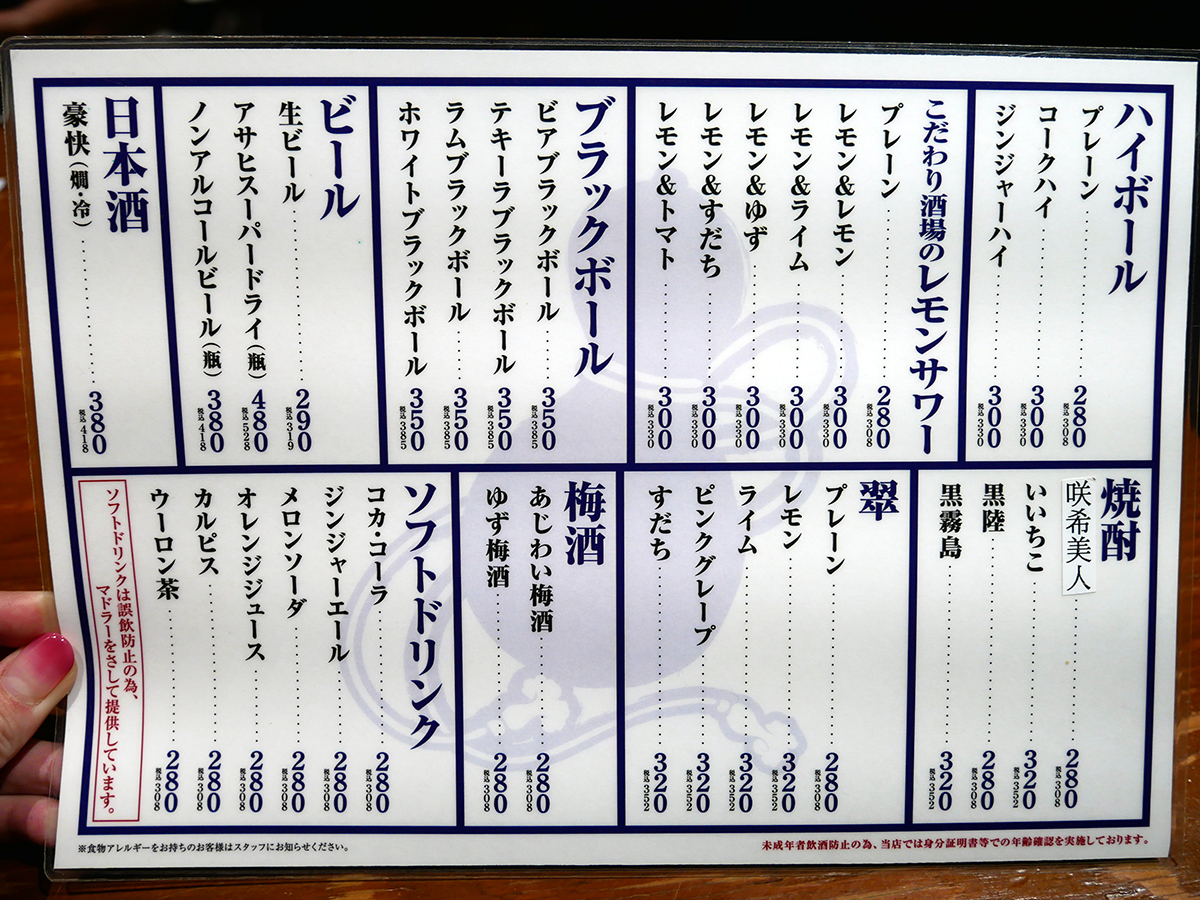 ハイボール
プレーン 280 税込308
コークハイ 300 税込330
ジンジャーハイ 300 税込330
こだわり酒場のレモンサワー
プレーン 280 税込308
レモン&レモン 300 税込330
レモン&ライム 300 税込330
レモン&ゆず 300 税込330
レモン&すだち 300 税込330
レモン&トマト 300 税込330
ブラックボール
ビアブラックボール 350 税込385
テキーラブラックボール 350 税込385
ラムブラックボール 350 税込385
ホワイトブラックボール 350 税込385
ビール
生ビール 290 税込319
アサヒスーパードライ(瓶) 480 税込528
ノンアルコールビール(瓶) 380 税込418
日本酒
豪快(燗・冷) 380 税込418
焼酎
咲希美人 280 税込308
いいちこ 320 税込352
黒陸 280 税込308
黒霧島 320 税込352
翠
プレーン 280 税込308
レモン 320 税込352
ライム 320 税込352
ピンクグレープ 320 税込352
すだち 320 税込352
梅酒
あじわい梅酒 280 税込308
ゆず梅酒 280 税込308
ソフトドリンク
コカ・コーラ 280 税込308
ジンジャーエール 280 税込308
メロンソーダ 280 税込308
オレンジジュース 280 税込308
カルピス 280 税込308
ウーロン茶 280 税込308
ソフトドリンクは誤飲防止の為、
マドラーをさして提供しています。
※食物アレルギーをお持ちのお客様はスタッフにお知らせください。
未成年者飲酒防止の為、当店では身分証明書等での年齢確認を実施しております。